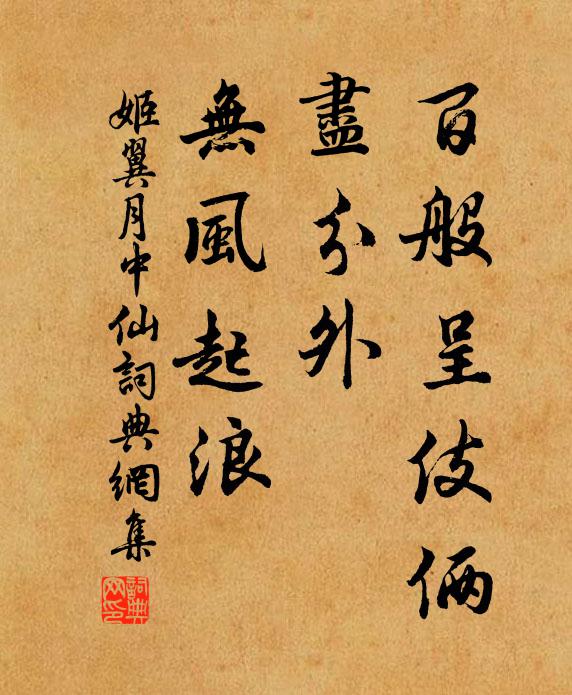 百般呈伎倆
盡分外
無風起浪
姬翼月中仙詞典網集
詞典網印